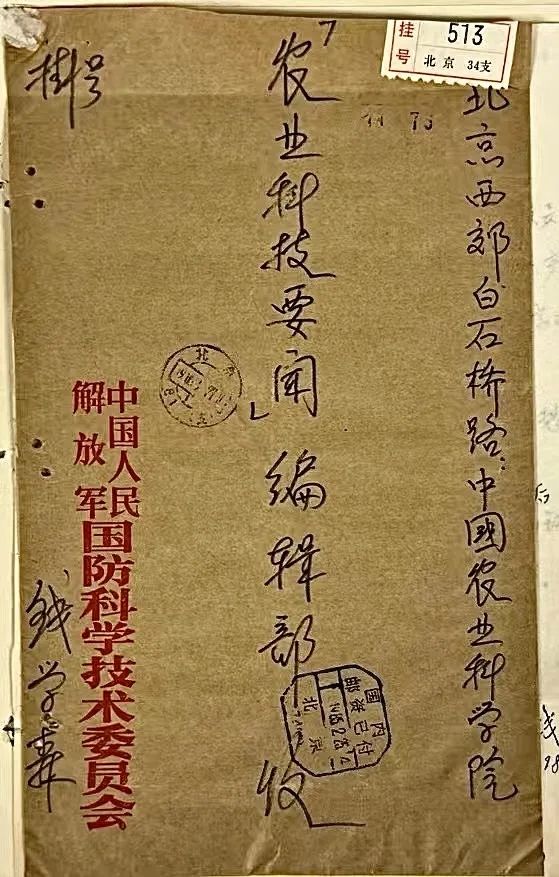 挂号 513
北京 34支
北京西郊白石桥路：中國农业科学院
「农业科技要闻」编辑部 收
掛号
中国人民
解放军
国防科学技术委员会
钱学森
国内付
邮资已
北京
北京